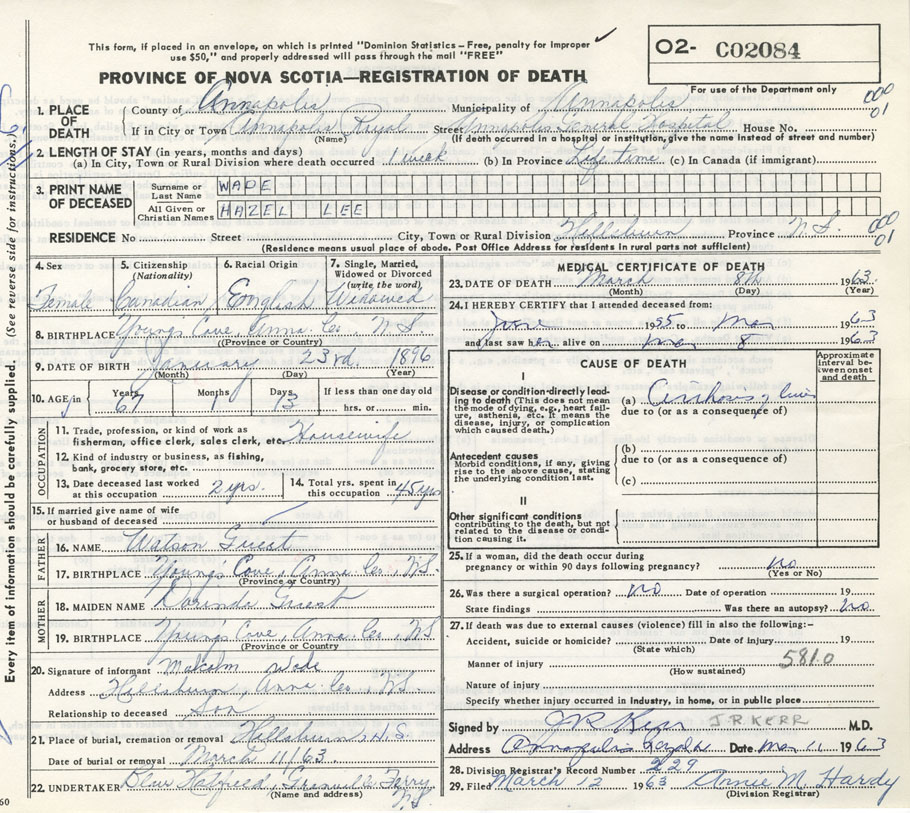 This form, if placed in an envelope, on which is printed "Dominion Statistics – Free, penalty for improper
use $50," and properly addressed will pass through the mail "FREE"
O2- C02084
For use of the Department only
PROVINCE OF NOVA SCOTIA—REGISTRATION OF DEATH
1. PLACE OF DEATH County of Annapolis Municipality of Annapolis 000
If in City or Town Annapolis Royal Street Annapolis General Hospital House No. 01
(Name) (If death occurred in a hospital or institution, give the name instead of street and number)
2. LENGTH OF STAY (in years, months and days)
(a) In City, Town or Rural Division where death occurred 1 week (b) In Province Life time (c) In Canada (if immigrant)
3. PRINT NAME OF DECEASED
Surname or Last Name WADE
All Given or Christian Names HAZEL LEE
RESIDENCE No Street City, Town or Rural Division Hillsburn Province N.S. 000 01
(Residence means usual place of abode. Post Office Address for residents in rural parts not sufficient)
4. Sex Female
5. Citizenship (Nationality) Canadian
6. Racial Origin English
7. Single, Married, Widowed or Divorced (write the word) Widowed
8. BIRTHPLACE Young's Cove Anna. Co. N.S.
(Province or Country)
9. DATE OF BIRTH January 23rd 1896
(Month) (Day) (Year)
10. AGE in Years 67 Months 1 Days 13 If less than one day old hrs. or min.
OCCUPATION
11. Trade, profession or kind of work as
fisherman, office clerk, sales clerk, etc. Housewife
12. Kind of industry or business, as fishing,
bank, grocery store, etc.
13. Date deceased last worked at this occupation 2 yrs.
14. Total yrs. spent in this occupation 45 yrs
15. If married give name of wife
or husband of deceased
FATHER
16. NAME Watson Guest
17. BIRTHPLACE Young's Cove, Anna Co. N.S.
(Province or Country)
MOTHER
18. MAIDEN NAME Dorinda Guest
19. BIRTHPLACE Young's Cove, Anna. Co. N.S
(Province or Country)
20. Signature of informant Malcolm Wade
Address Hillsburn, Anna. Co., N.S.
Relationship to deceased Son
21. Place of burial, cremation or removal Hillsburn N.S.
Date of burial or removal March 11/63
22. UNDERTAKER Hatfield, Granville Ferry
(Name and address) N.S.
MEDICAL CERTIFICATE OF DEATH
23. DATE OF DEATH March 8th 1963
(Month) (Day) (Year)
24. I HEREBY CERTIFY that I attended deceased from:
June 1955 to Mar 1963
and last saw her alive on Mar 8 1963
CAUSE OF DEATH
Approximate interval between onset and death
I
Disease or condition directly leading to death (This does not mean
the mode of dying, e.g., heart failure, asthenia, etc. It means the
disease, injury, or complication
which caused death.)
(a) Cirrhosis of liver
due to (or as a consequence of)
Antecedent causes
Morbid conditions, if any, giving
rise to the above cause, stating
the underlying condition last.
(b)
due to (or as a consequence of)
(c)
II
Other significant conditions
contributing to the death, but not
related to the disease or condition causing it.
25. If a woman, did the death occur during
pregnancy or within 90 days following pregnancy? no
(Yes or No)
26. Was there a surgical operation? no Date of operation 19
State findings Was there an autopsy? no
27. If death was due to external causes (violence) fill in also the following:-
Accident, suicide or homicide? Date of injury 19
(State which)
Manner of injury 581.0
(How sustained)
Nature of injury
Specify whether injury occurred in Industry, in home, or in public place
Signed by J R Kerr J.R. KERR M.D.
Address Annapolis Royal Date Mar 11 1963
28. Division Registrar's Record Number 229
29. Filed March 12 1963 Annie M. Hardy
(Division Registrar)
Every item of information should be carefully supplied. (See reverse side for instructions.)
60